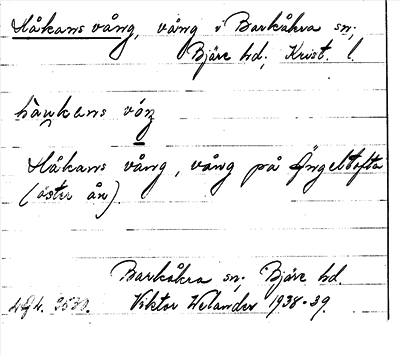 Håkans vång, vång i Barkåkra sn;
Bjäre hd; Krist. l.
håukens våŋ
Håkans vång, vång på Ängeltofta
(öster ån).
Barkåkra sn. Bjäre hd.
Viktor Welander 1938-39.